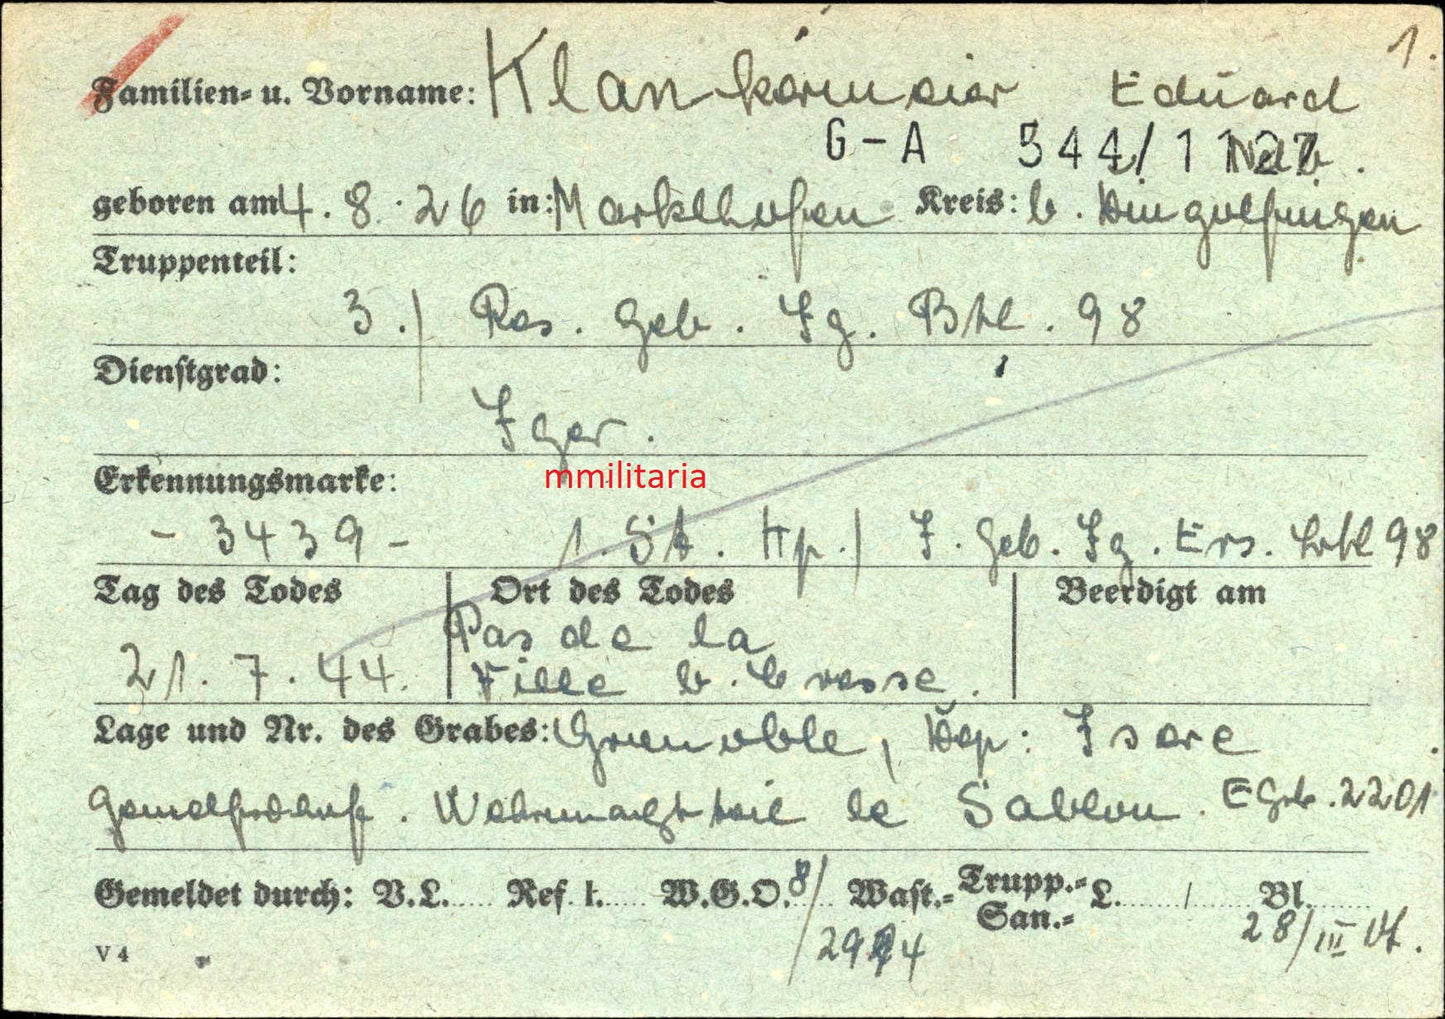 1.
Familien- u. Vorname: Klankermeier Eduard
G-A 544/1127
geboren am 4.8.26 in: Marklkofen Kreis: b. Dingolfingen
Truppenteil:
3./ Res. Geb. Jg. Btl. 98
Dienstgrad:
Jger.
mmilitaria
Erkennungsmarke:
- 3439 - 1. St. Kp./ Geb. Jg. Ers. Btl 98
Tag des Todes Ort des Todes Beerdigt am
Pas de la
21.7.44. Ville b. Cresse.
Lage und Nr. des Grabes: Grenoble, Dep: Isere
Wehrmachtteil le Sablon. EGrb. 2201
Gemeldet durch: V.L. Ref. I. W.G.O. 8/ Wast.- Trupp.- San.- L. / Bl.
28/III
V 4